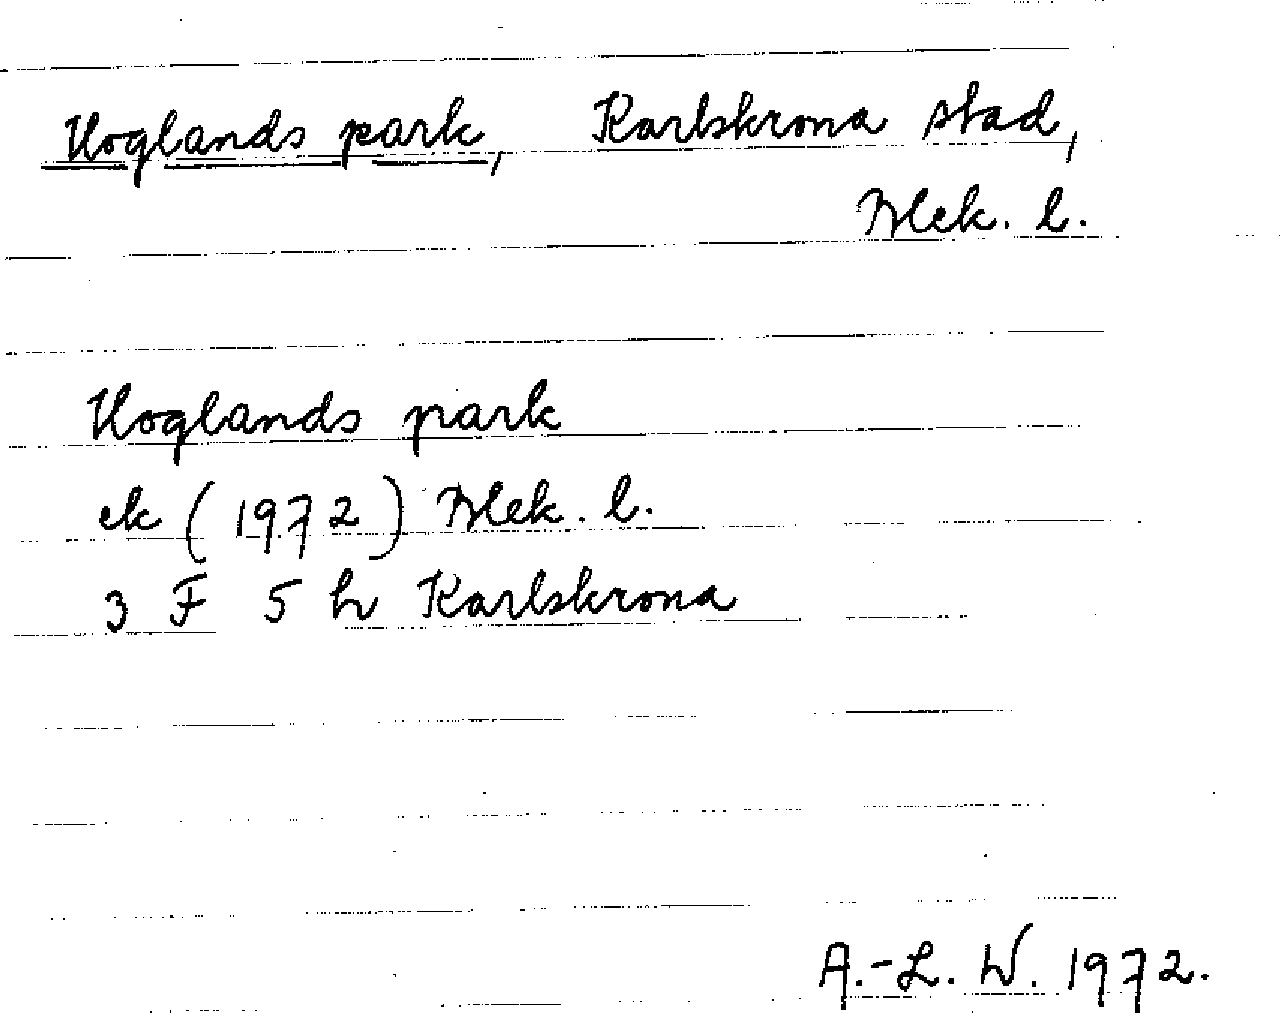 Hoglands park, Karlskrona stad,
Blek. l.
Hoglands park
ek (1972) Blek. l.
3 F 5 h Karlskrona
A.-L. W. 1972.